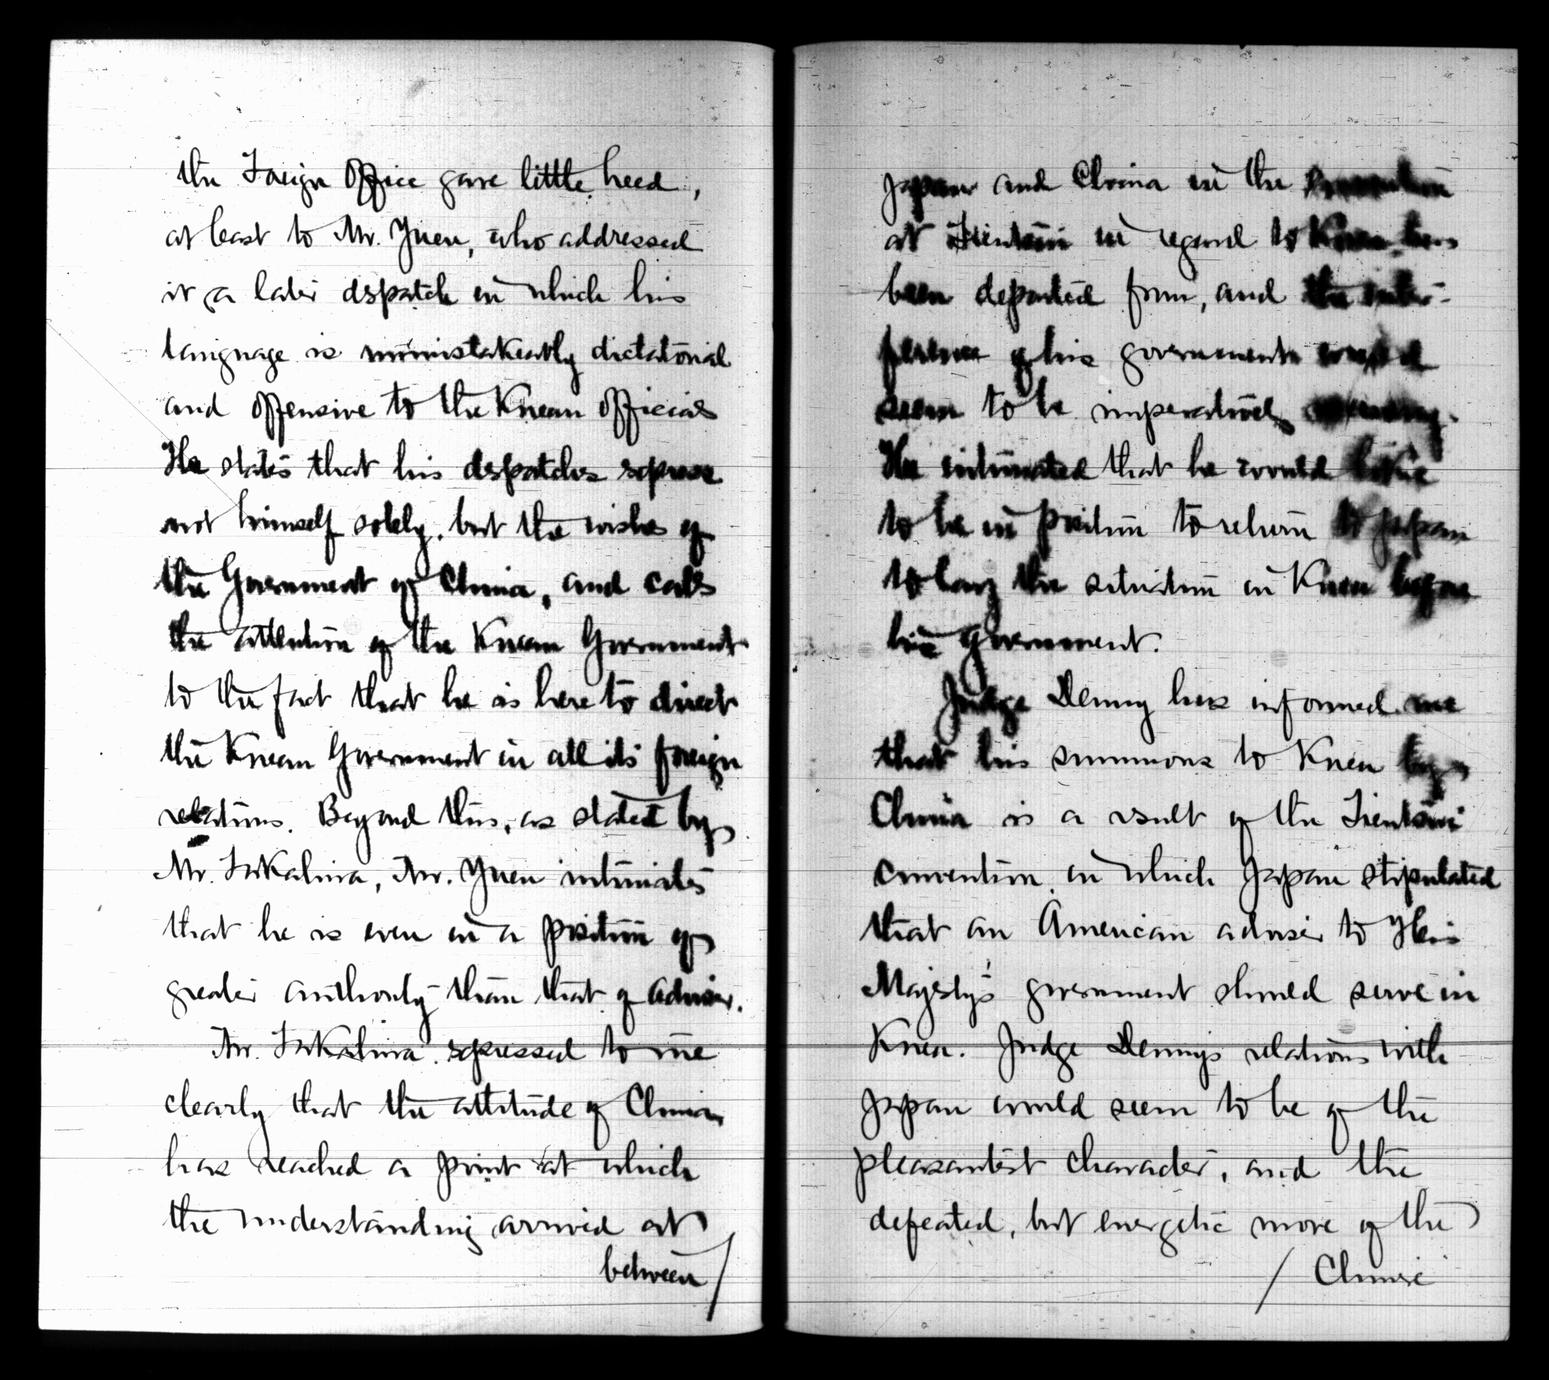 the Foreign Office gave little heed,
at least to Mr. Yuen, who addressed
it a later dspatch in which his
language is unmistakeably dictatorial
and offensive to the Korean official
He states that his despatches express
not himself solely, but the wishes of
the Government of China, and calls
the attention of the Korean Government
to the fact that he is here to direct
the Korean Government in all its foreign
relations. Beyond this, as stated by
Mr. Takahira, Mr. Yuen intimates
that he is even in a position of
greater authority than that of adviser.
Mr. Takahira expressed to me
clearly that the attitude of China
has reached a point at which
the understanding arrived at
between
Japan and China in the
at Tientsin in regard to Korea has
been departed from, and the inter-
ference of his government would
seem to be imperatively necessary.
He intimated that he would like
to be in position to return to Japan
to lay the situation in Korea before
his government.
Judge Denny has informed me
that his summons to Korea by
China is a result of the Tientsin
convention in which Japan stipulated
that an American adviser to His
Majesty's government should serve in
Korea. Judge Denny's relations with
Japan would seem to be of the
pleasantest character, and the
defeated, but energetic move of the
Chinese